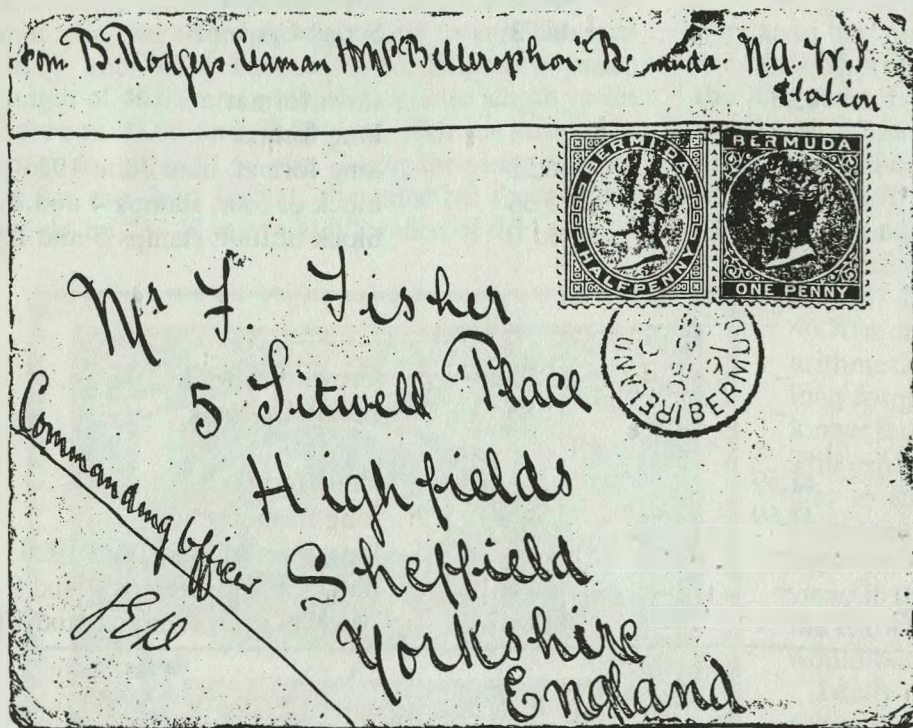 from B. Rodgers. Seaman HMS Bellerophon. Bermuda. N.A. W.I
Station
BERMUDA
HALFPENNY
BERMUDA
ONE PENNY
IRELAND I BERMUDA
Mr. F. Fisher
5 Sitwell Place
Highfields
Sheffield
Yorkshire
England
Commanding Officer